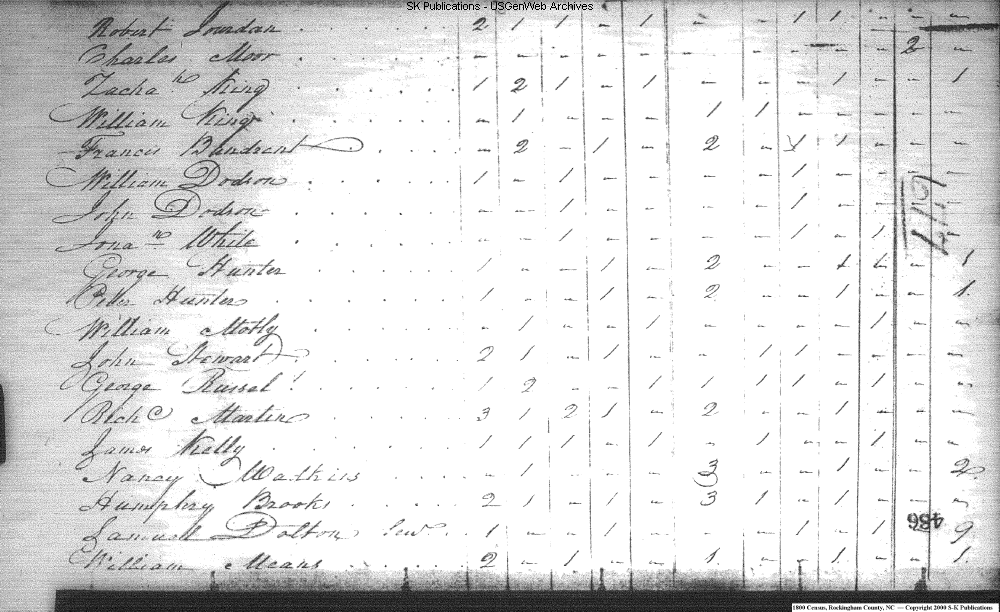 SK Publications - USGenWeb Archives
Robert Jourdan 2 1 1 - 1 - - 1 1 - - -
Charles Moor - - - - - - - - - - 2 -
Zacha.h King 1 2 1 - 1 - - - 1 - - 1
William King - 1 - - - 1 1 - - - - -
Francis - 2 - 1 - 2 - 1 1 - - -
William Dodson 1 - 1 - - - - 1 - - - -
John Dodson - - 1 - - - - 1 - - - -
Jona.n White - - 1 - - - - 1 - 1 - -
George Hunter 1 - - 1 - 2 - - 1 - 1
Peter Hunter 1 - - 1 - 2 - - 1 - - 1
William Motly - 1 - - 1 - - - - 1 - -
John Stewart 2 1 - 1 - - 1 1 - - - -
George Russel 1 2 - - 1 1 1 1 - 1 - -
Richd Martin 3 1 2 1 - 2 - - 1 - - 1
James Kelly 1 1 1 - 1 - 1 - - 1 - -
Nancy Watkins - 1 - - - 3 - - 1 - - 2
Humphry Brooks 2 1 - 1 - 3 1 - 1 - - -
Samuell Dolton Senr. 1 - - 1 - - - 1 - 1 9
William Means 2 - 1 - - 1 - - 1 - - 1
486
1800 Census, Rockingham County, NC — Copyright 2000 S-K Publications